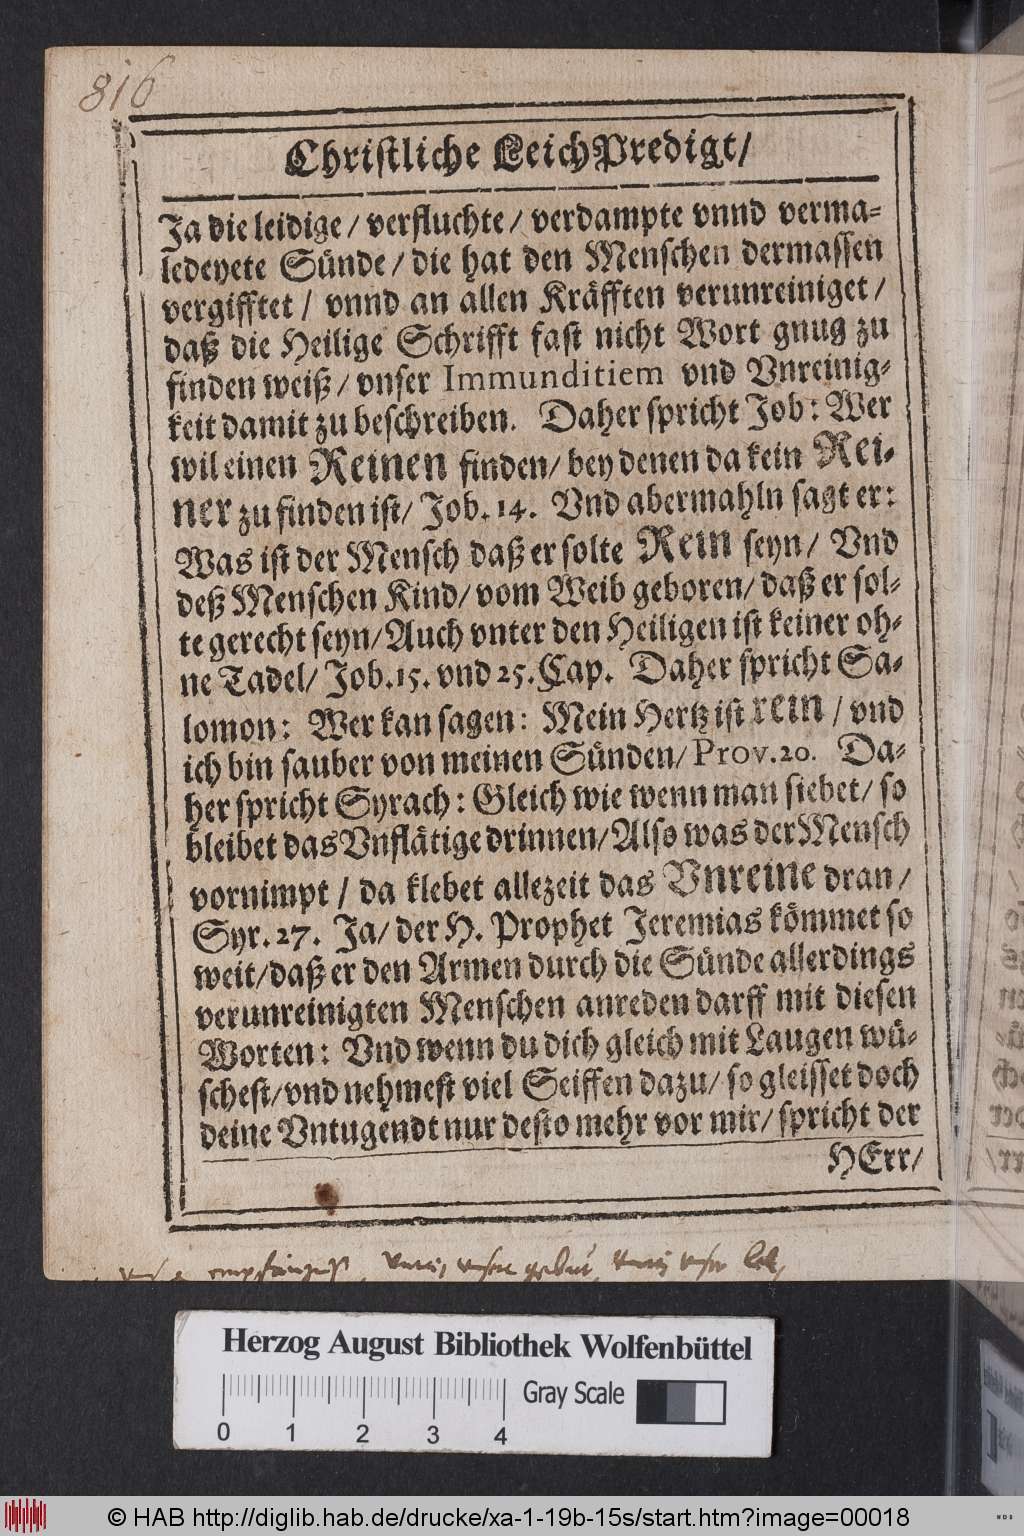 816
Christliche LeichPredigt/
Ja die leidige/ verfluchte/ verdampte vnnd verma-
ledeyete Sünde/ die hat den Menschen dermassen
vergifftet/ vnnd an allen Kräfften verunreiniget/
daß die Heilige Schrifft fast nicht Wort gnug zu
finden weiß/ vnser Immunditiem vnd Vnreinig-
keit damit zu beschreiben. Daher spricht Job: Wer
wil einen Reinen finden/ bey denen da kein Rei-
ner zu finden ist/ Job. 14. Vnd abermahln sagt er:
Was ist der Mensch daß er solte Rein seyn/ Vnd
deß Menschen Kind/ vom Weib geboren/ daß er sol-
te gerecht seyn/ Auch vnter den Heiligen ist keiner oh-
ne Tadel/ Job. 15. vnd 25. Cap. Daher spricht Sa-
lomon: Wer kan sagen: Mein Hertz ist rein/ vnd
ich bin sauber von meinen Sünden/ Prov. 20. Da-
her spricht Syrach: Gleich wie wenn man siebet/ so
bleibet das Vnflätige drinnen/ Also was der Mensch
vornimpt/ da klebet allezeit das Vnreine dran/
Syr. 27. Ja/ der H. Prophet Jeremias kömmet so
weit/ daß er den Armen durch die Sünde allerdings
verunreinigten Menschen anreden darff mit diesen
Worten: Vnd wenn du dich gleich mit Laugen wü-
schest/ vnd nehmest viel Seiffen dazu/ so gleisset doch
deine Vntugendt nur desto mehr vor mir/ spricht der
HErr/
Herzog August Bibliothek Wolfenbüttel
Gray Scale
0 1 2 3 4
© HAB http://diglib.hab.de/drucke/xa-1-19b-15s/start.htm?image=00018